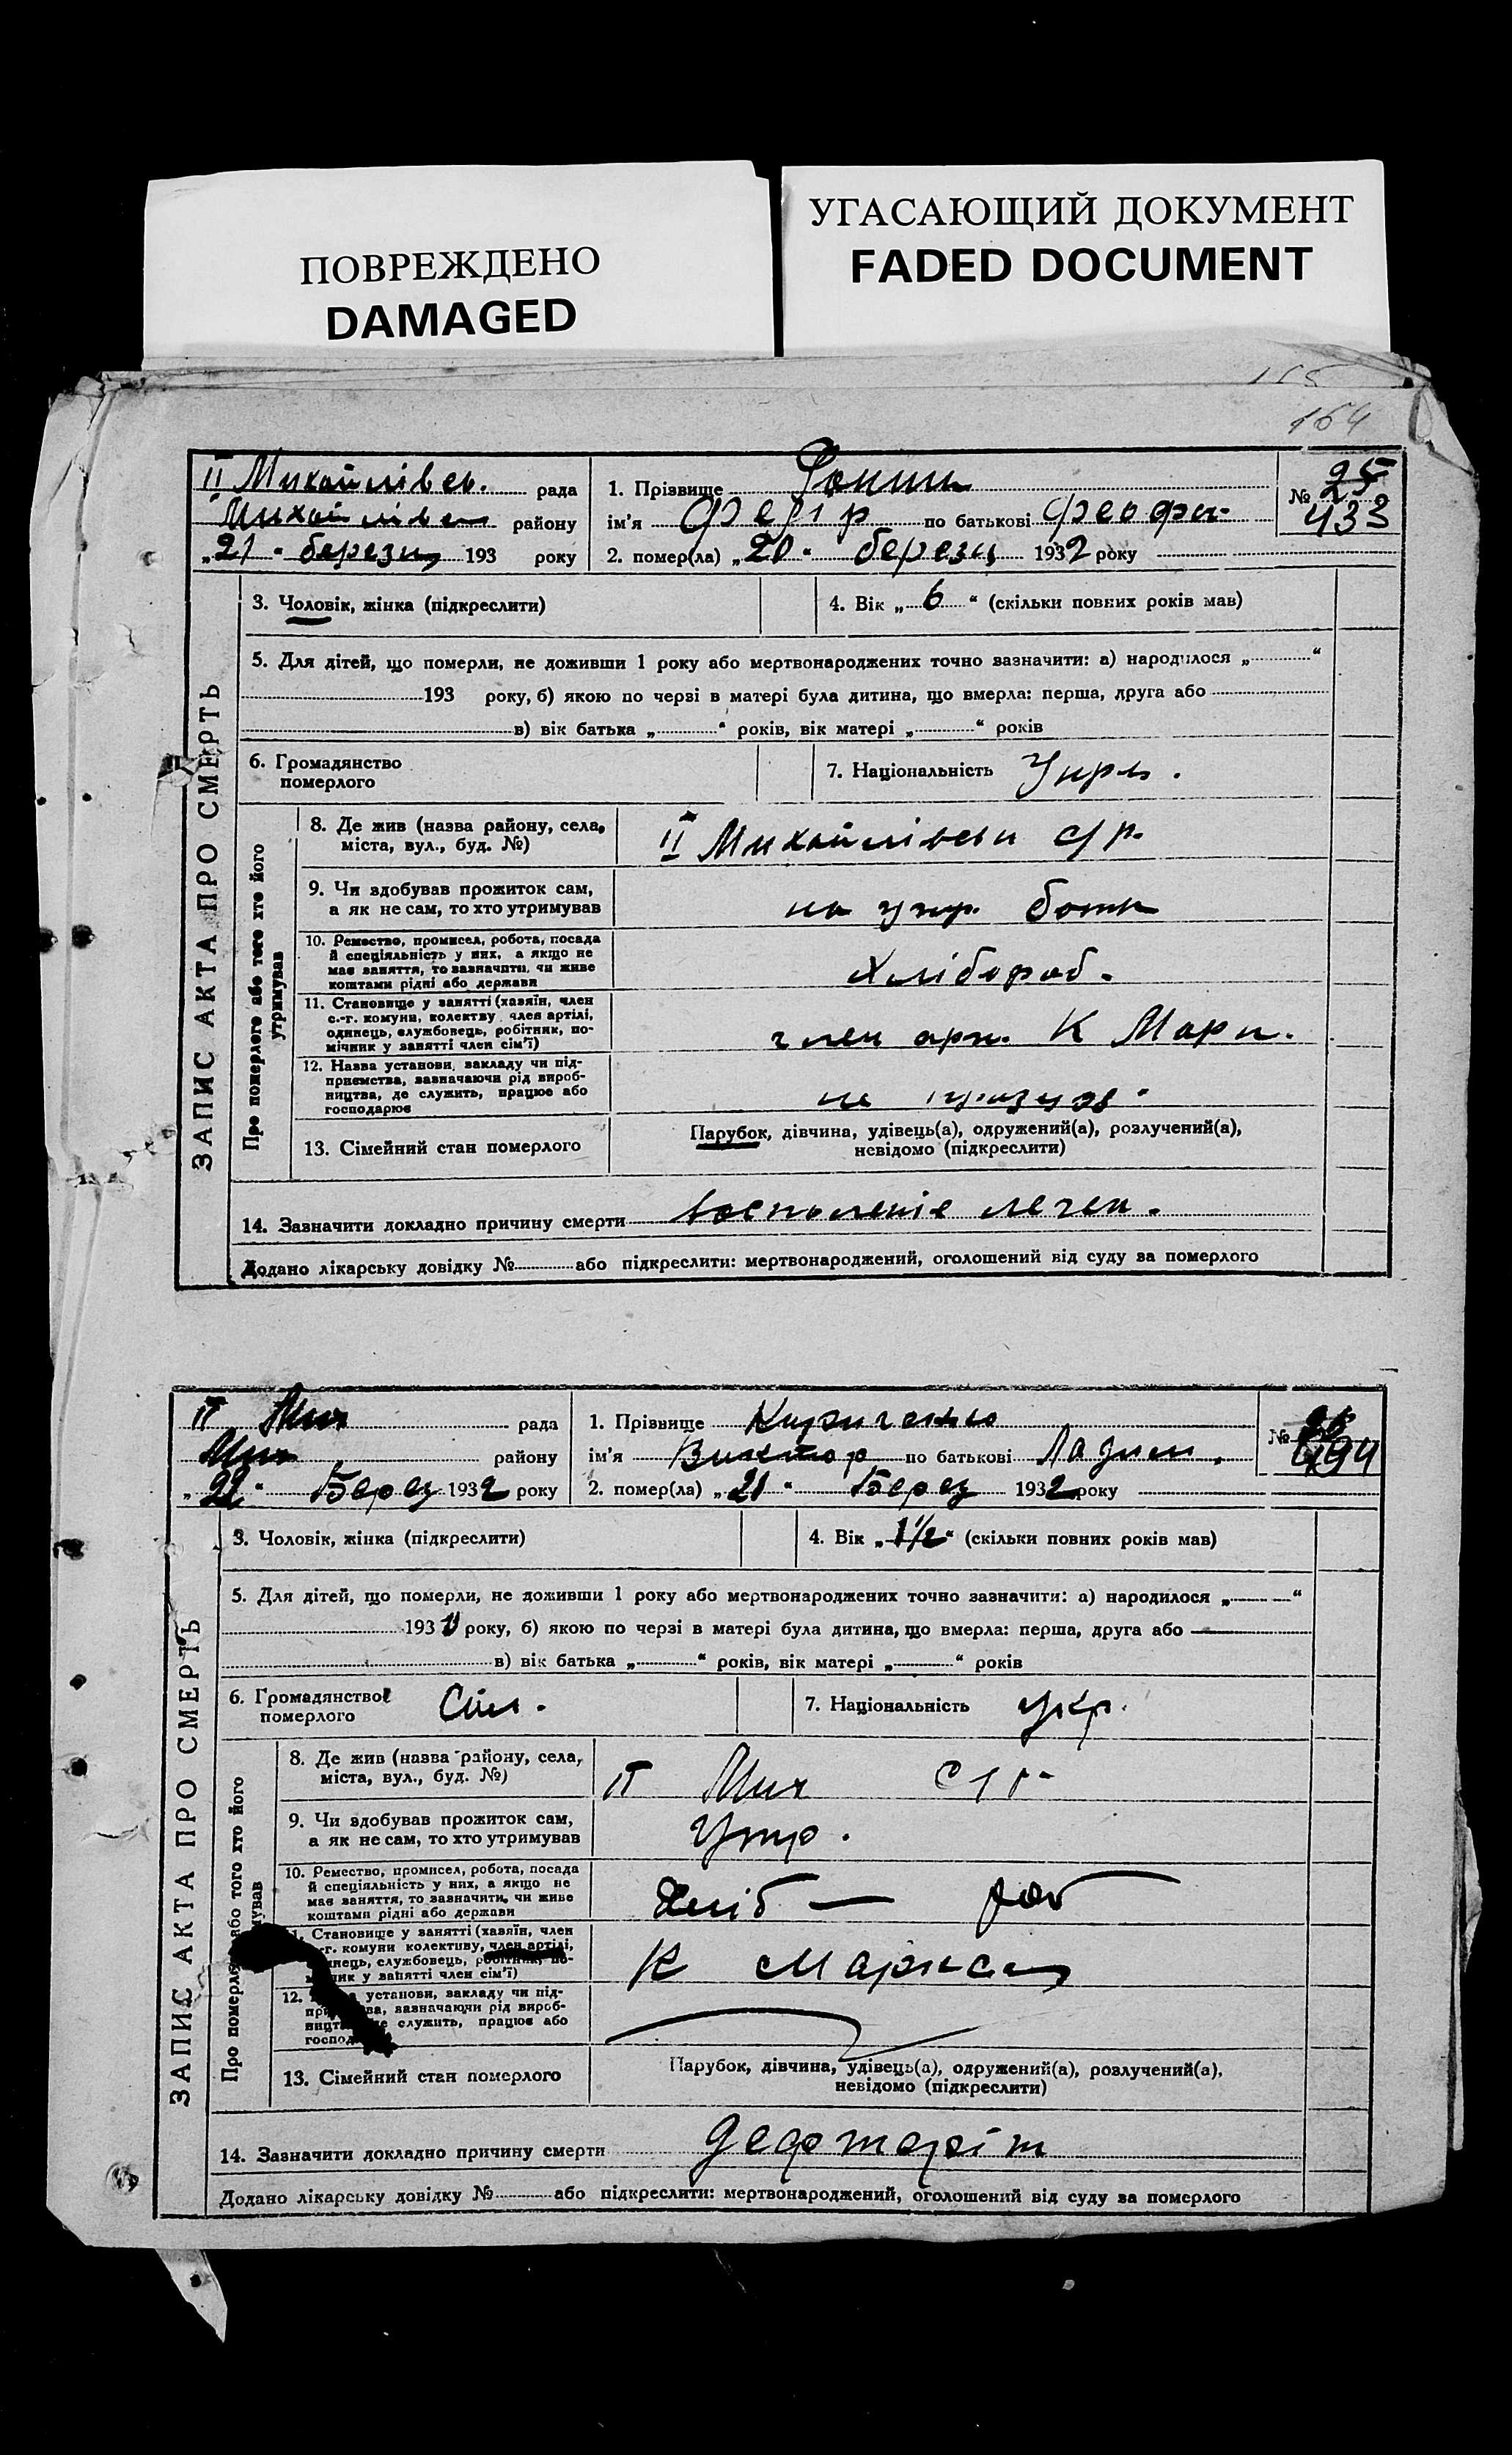 ПОВРЕЖДЕНО
DAMAGED
УГАСАЮЩИЙ ДОКУМЕНТ
FADED DOCUMENT
164
ЗАПИС АКТА ПРО СМЕРТЬ
II Михайлівсь. рада
району
„21“ березня 193 року
1. Прізвище Фокин
ім'я Федір по батькові Феофа-
2. помер(ла) „20“ березня 1932 року
№ 25
433
3. Чоловік, жінка (підкреслити)
4. Вік „6“ (скільки повних років мав)
5. Для дітей, що померли, не доживши 1 року або мертвонароджених точно зазначити: а) народилося „ “
193 року, б) якою по черві в матері була дитина, що вмерла: перша, друга або
в) вік батька „ “ років, вік матері „ “ років
6. Громадянство
померлого
7. Національність Укр.
Про померлого або того хто його
утримував
8. Де жив (назва району, села,
міста, вул., буд. №)
II Михайлівськ с/р.
9. Чи здобував прожиток сам,
а як не сам, то хто утримував
на утр. батьк
10. Ремество, промисел, робота, посада
й спеціяльність у них, а якщо не
має заняття, то зазначити, чи живе
коштами рідні або держави
Хлібороб.
11. Становище у занятті (хазяїн, член
с.-г. комуни, колективу член артілі,
одинець, службовець, робітник, по-
мічник у занятті член сім'ї)
член арт. К Марк.
12. Назва установи, закладу чи під-
приємства, зазначаючи рід вироб-
ництва, де служить, працює або
господарює
не
13. Сімейний стан померлого
Парубок, дівчина, удівець(а), одружений(а), розлучений(а),
невідомо (підкреслити)
14. Зазначити докладно причину смерти воспаленіе легек.
Додано лікарську довідку № або підкреслити: мертвонароджений, оголошений від суду за померлого
ЗАПИС АКТА ПРО СМЕРТЬ
II Мих рада
Мих району
„22“ Берез 1932 року
1. Прізвище Кириченко
ім'я Виктор по батькові
2. помер(ла) „21“ Берез 1932 року
№
3. Чоловік, жінка (підкреслити)
4. Вік „1½“ (скільки повних років мав)
5. Для дітей, що померли, не доживши 1 року або мертвонароджених точно зазначити: а) народилося „ “
193 року, б) якою по черзі в матері була дитина, що вмерла: перша, друга або
в) вік батька „ “ років, вік матері „ “ років
6. Громадянство
померлого
7. Національність укр.
Про померлого або того хто його
8. Де жив (назва району, села,
міста, вул., буд. №)
II Мих с/р-
9. Чи здобував прожиток сам,
а як не сам, то хто утримував
Утр.
10. Ремество, промисел, робота, посада
й спеціяльність у них, а якщо не
має заняття, то зазначити, чи живе
коштами рідні або держави
Хліб — роб
Становище у занятті (хазяїн, член
комуни колективу, член артілі,
службовець, робітник, по-
у занятті член сім'ї)
К Маркса
12. установи, закладу чи під-
зазначаючи рід вироб-
служить, працює або
13. Сімейний стан померлого
Парубок, дівчина, удівець(а), одружений(а), розлучений(а),
невідомо (підкреслити)
14. Зазначити докладно причину смерти дефтаріт
Додано лікарську довідку № або підкреслити: мертвонароджений, оголошений від суду за померлого